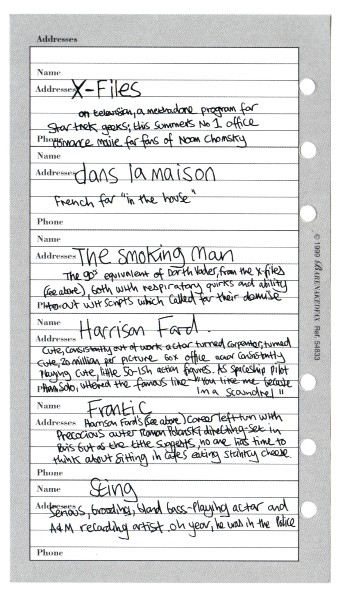 Addresses
Name
Addresses X-Files
on television, a methadone program for
Star trek geeks; this summers No 1 office
Phone romance movie for fans of Noam Chomsky
Name
Addresses dans la maison
French for "in the house"
Phone
Name
Addresses The smoking Man
The 90s equivalent of Darth Vader, from the x-files
(see above), both with respiratory quirks and ability
Phone to out wit scripts which called for their demise
Name
Addresses Harrison Ford.
Cute, consistently out of work actor turned, carpenter, turned
cute, 20 million per picture box office actor consistantly
Playing cute, little 50-ish action figures. As spaceship pilot
Phone Han Solo, uttered the famous line "You like me because
Im a scoundrel"
Name
Addresses Frantic
Harrison Ford's (see above) career left turn with
Precocious auter Roman Polanski directing-set in
Paris but as the title suggests, no one has time to
think about sitting in cafes eating stainky cheese.
Phone
Name
Addresses Sting
Serious, brooding, bland bass-playing actor and
A&M recording artist oh year, he was in the Police
Phone
© 1999 BARENAKEDFAX Ref. 54833